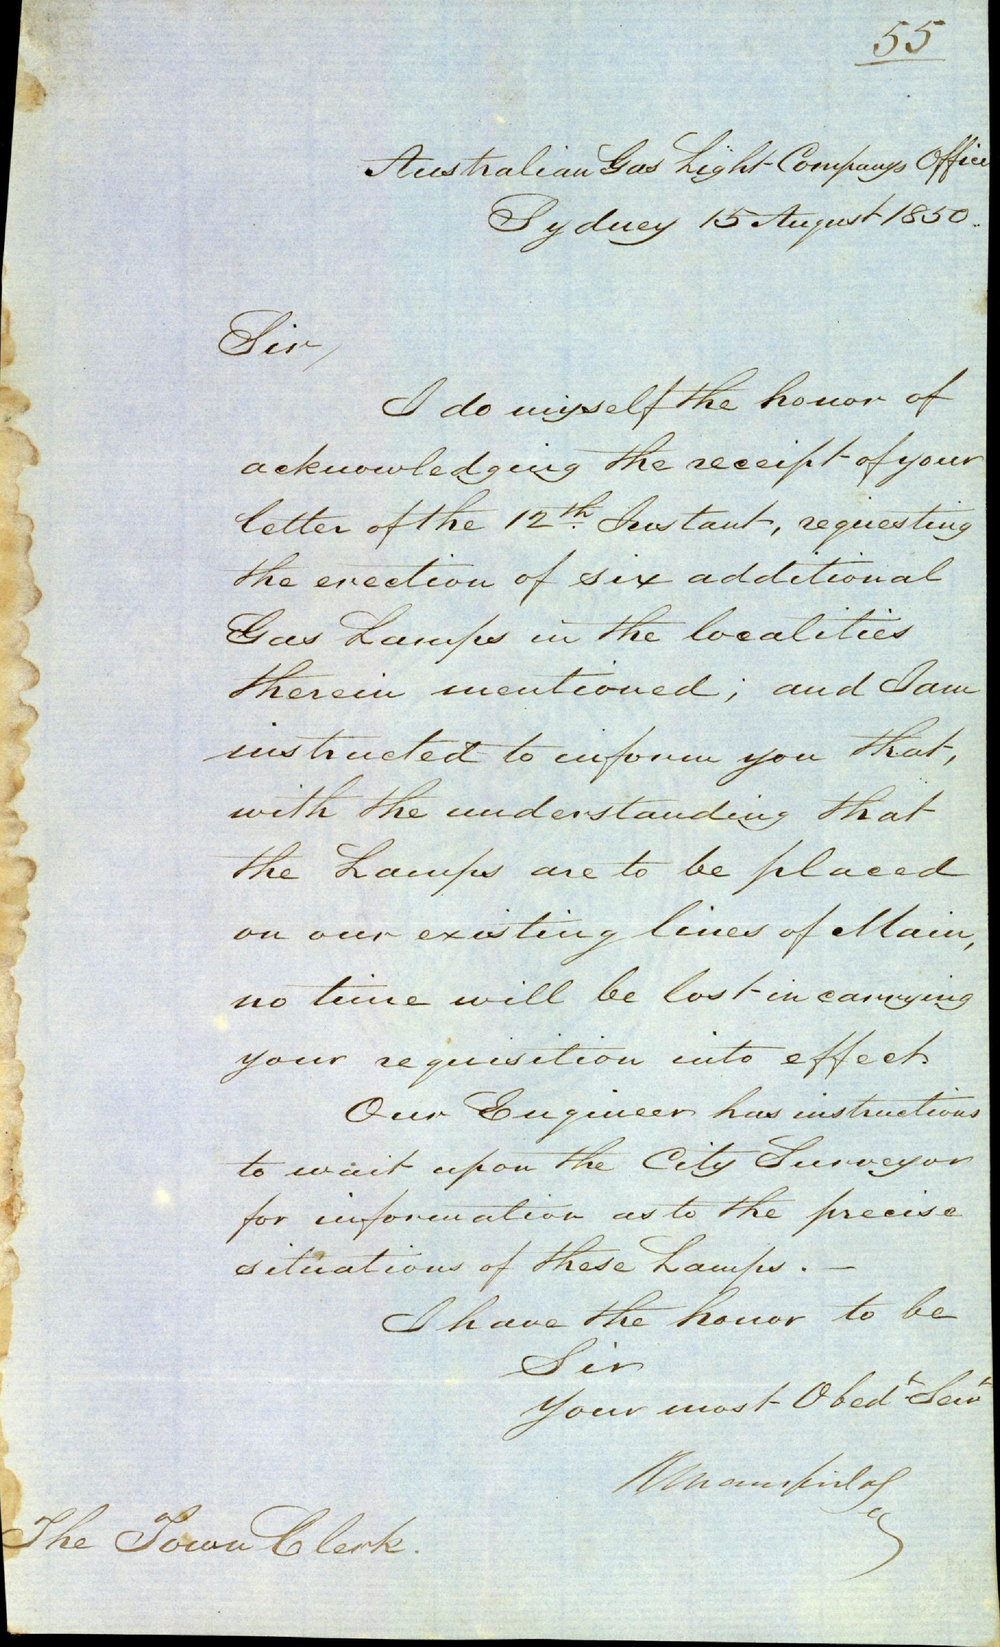 55
Australian Gas Light Companys Office
Sydney 15 August 1850.
Sir,
I do myself the honor of
acknowledging the receipt of your
letter of the 12th Instant, requesting
the erection of six additional
Gas Lamps in the localities
therein mentioned; and I am
instructed to inform you that,
with the understanding that
the Lamps are to be placed
on our existing lines of Main,
no time will be lost in carrying
your requisition into effect
Our Engineer has instructions
to wait upon the City Surveyor
for information as to the precise
situations of these Lamps. —
I have the honor to be
Sir
Your most Obedt Servt
The Town Clerk.